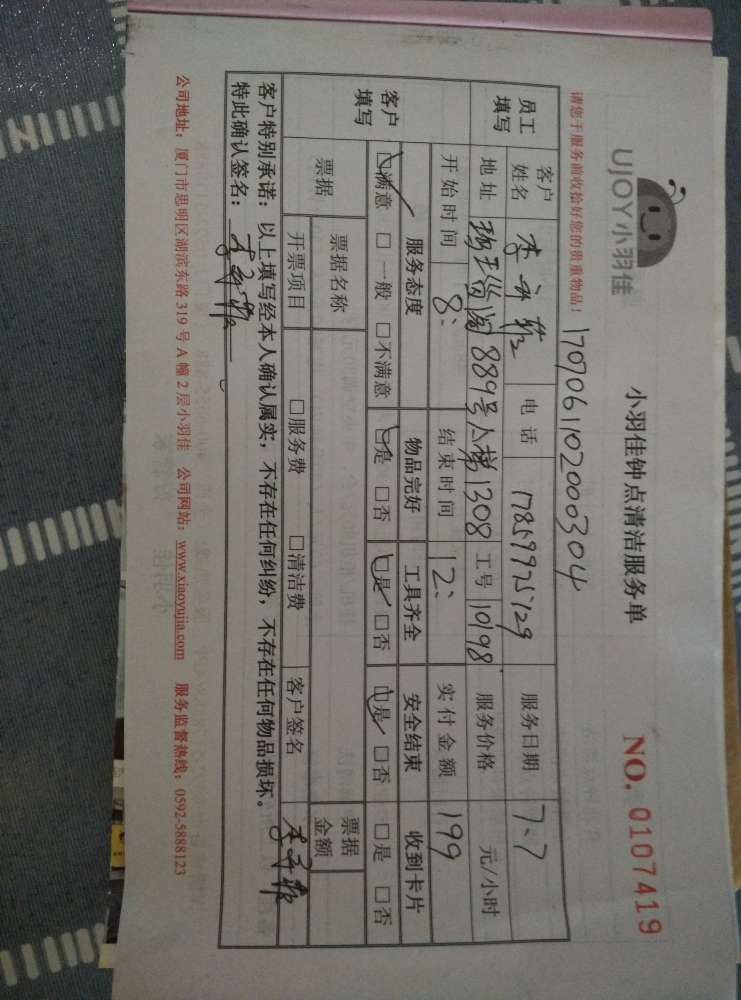 UJOY小羽佳
小羽佳钟点清洁服务单
NO. 0107419
请您于服务前收拾好您的贵重物品！
170706110200304
员工填写
客户姓名 李 电话 17859925129 服务日期 7.7
地址 889号 梯1308 工号 10198 服务价格 元/小时
开始时间 8: 结束时间 12: 实付金额 199
客户填写
服务态度 物品完好 工具齐全 安全结束 收到卡片
□满意 □一般 □不满意 □是 □否 □是 □否 □是 □否 □是 □否
票据 票据名称 票据金额
开票项目 □服务费 □清洁费 客户签名 李
客户特别承诺：以上填写经本人确认属实，不存在任何纠纷，不存在任何物品损坏。
特此确认签名：李
公司地址：厦门市思明区湖滨东路319号A幢2层小羽佳 公司网站：www.xiaoyujia.com 服务监督热线：0592-5888123